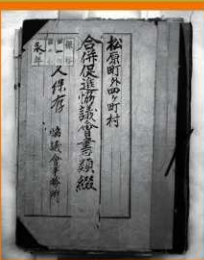 松原町外四ヶ町村
合併促進協議會書類綴
永年
人保存
協議會事務所